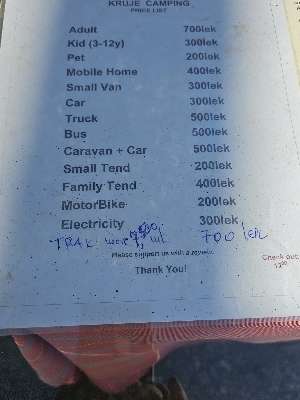 KRUJE CAMPING
PRICE LIST
Adult 700lek
Kid (3-12y) 300lek
Pet 200lek
Mobile Home 400lek
Small Van 300lek
Car 300lek
Truck 500lek
Bus 500lek
Caravan + Car 500lek
Small Tend 200lek
Family Tend 400lek
MotorBike 200lek
Electricity 300lek
TRAK 700 lek
Please support us with a review.
Thank You!
Check out: